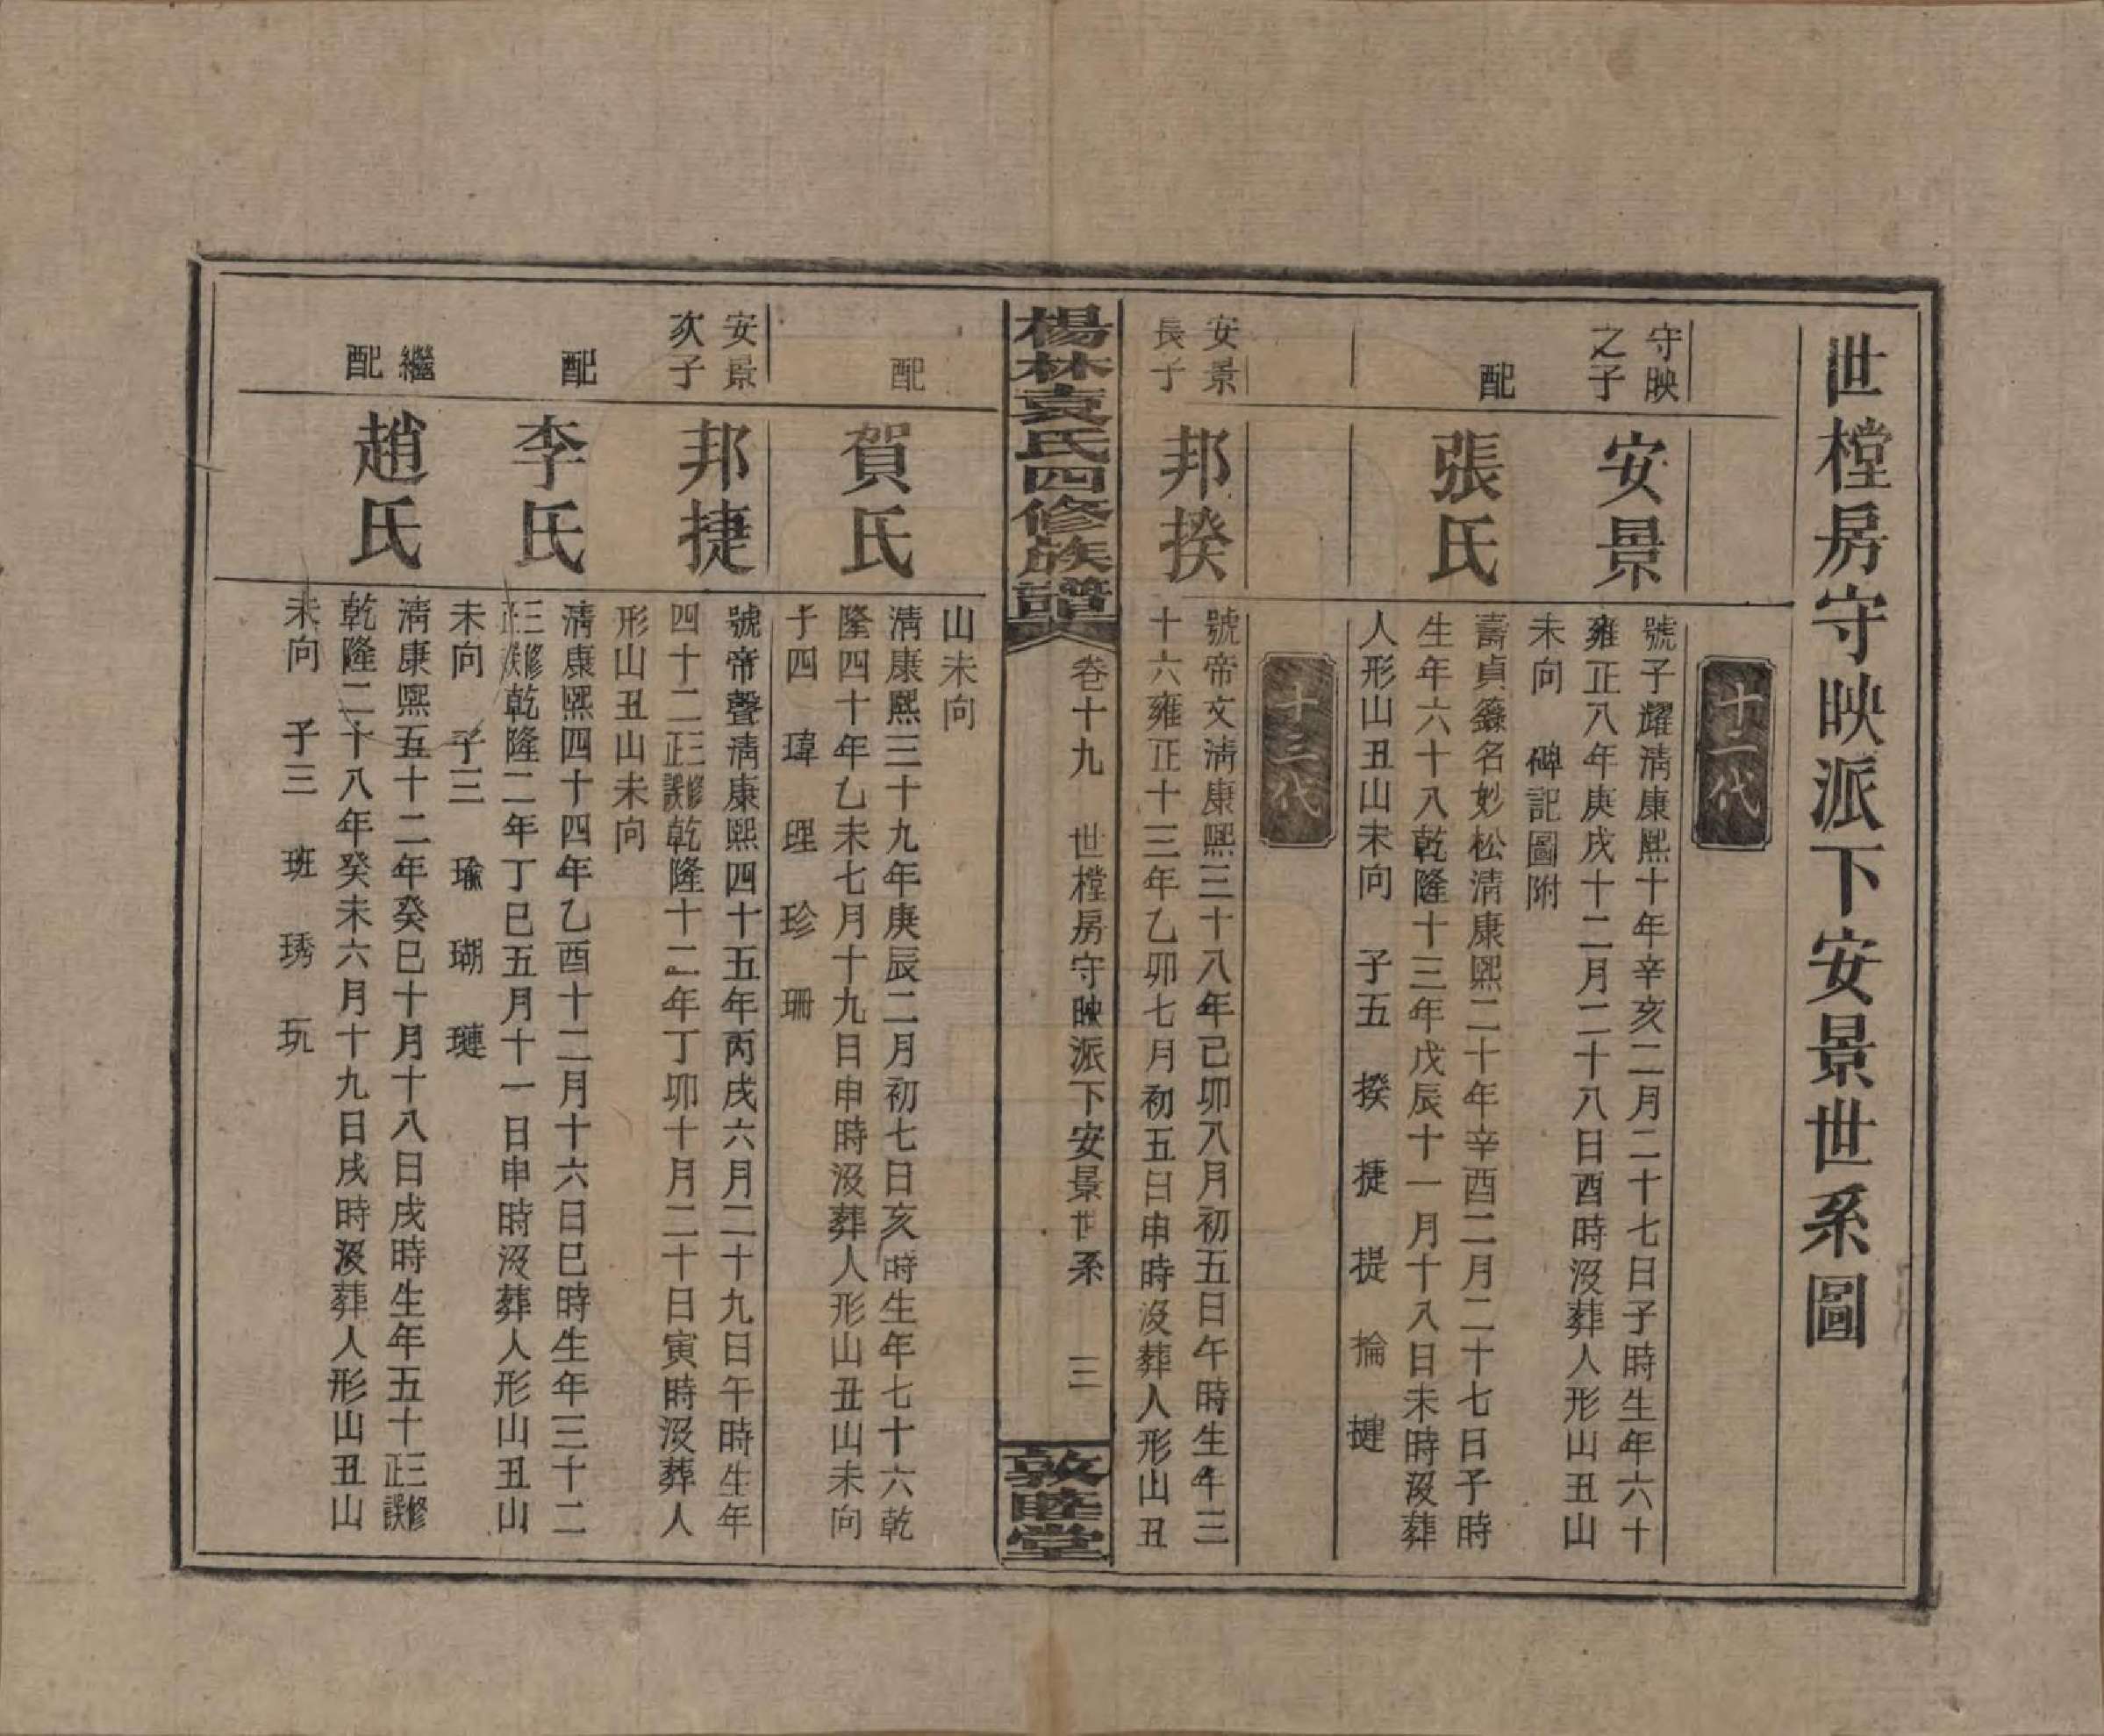 世樘房守映派下安景世系圖
十二代
守映
之子
安景
號子耀淸康熙十年辛亥二月二十七日子時生年六十
雍正八年庚戌十二月二十八日酉時沒葬人形山丑山
未向 碑記圖附
配
張氏
壽貞籙名妙松淸康熙二十年辛酉二月二十七日子時
生年六十八乾隆十三年戊辰十一月十八日未時沒葬
人形山丑山未向 子五 揆 捷 提 掄 摙
十三代
安景
長子
邦揆
號帝文淸康熙三十八年己卯八月初五日午時生年三
十六雍正十三年乙卯七月初五日申時沒葬人形山丑
楊林袁氏四修族譜
卷十九 世樘房守映派下安景世系 三
敦睦堂
山未向
配
賀氏
淸康熙三十九年庚辰二月初七日亥時生年七十六乾
隆四十年乙未七月十九日申時沒葬人形山丑山未向
子四 瑋 理 珍 珊
安景
次子
邦捷
號帝聲淸康熙四十五年丙戌六月二十九日午時生年
四十二三修正誤乾隆十二年丁卯十月二十日寅時沒葬人
形山丑山未向
配
李氏
淸康熙四十四年乙酉十二月十六日巳時生年三十二
三修正誤乾隆二年丁巳五月十一日申時沒葬人形山丑山
未向 子三 瑜 瑚 璉
繼
配
趙氏
淸康熙五十二年癸巳十月十八日戌時生年五十三修正誤
乾隆二十八年癸未六月十九日戌時沒葬人形山丑山
未向 子三 班 琇 玩